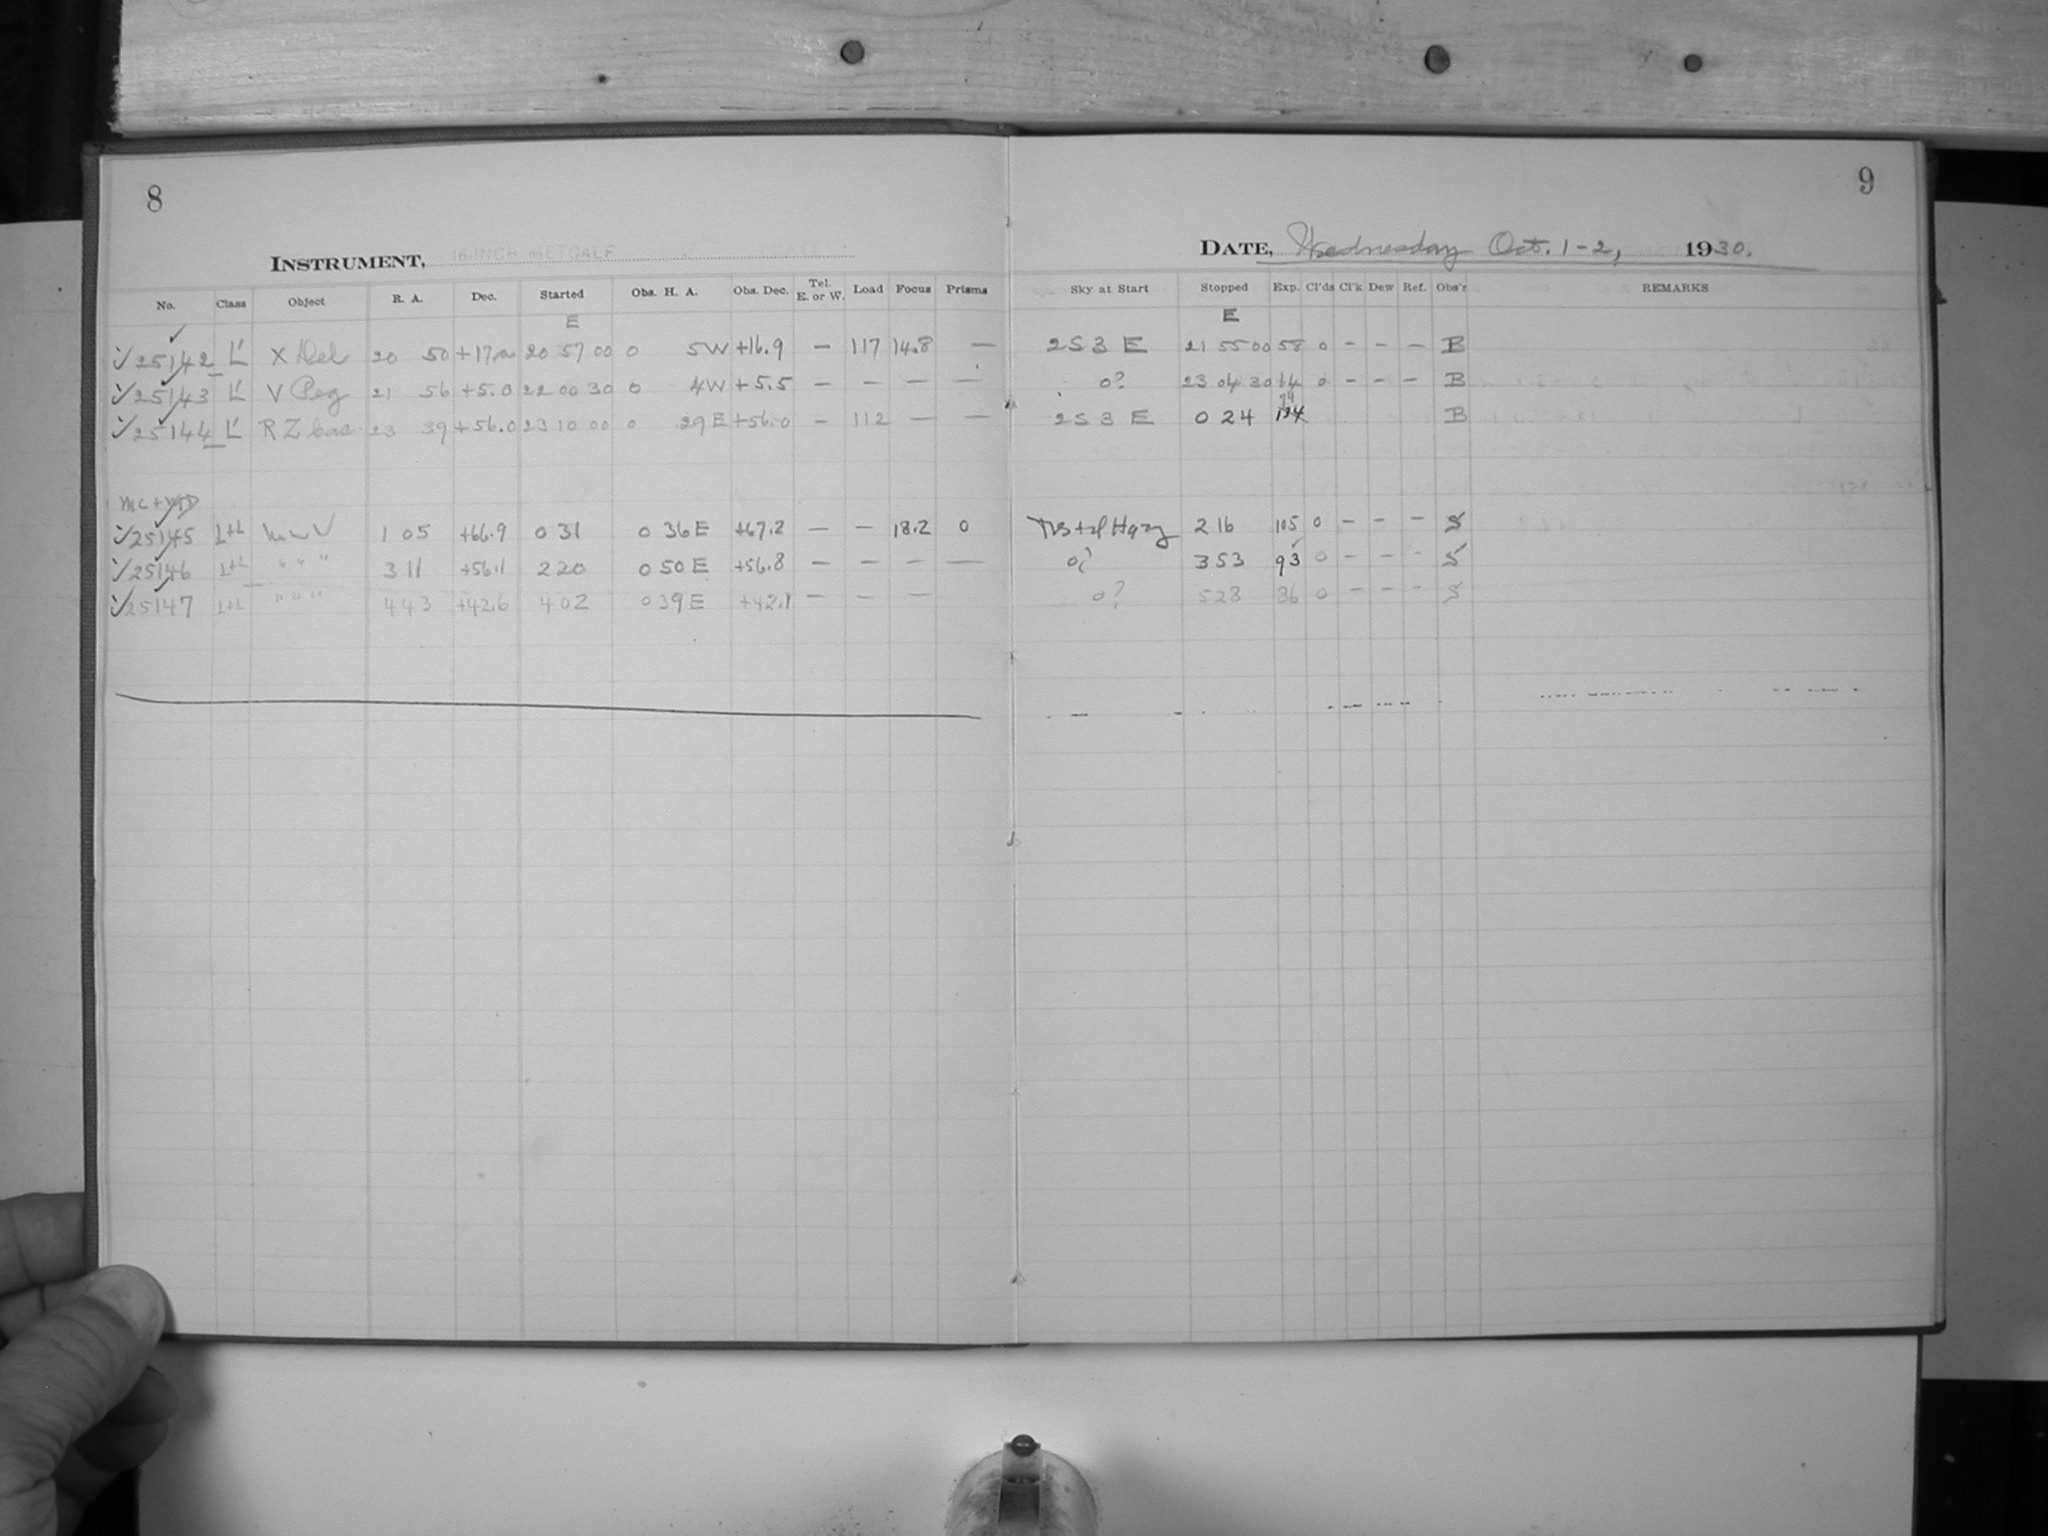 8
INSTRUMENT, 16-INCH METCALF
No. Class Object R. A. Dec. Started Obs. H. A. Obs. Dec. Tel. E. or W. Load Focus Prisms
E
25142 L' X Del 20 50 +17.0 20 57 00 0 5W +16.9 — 117 14.8 —
25143 L' V Peg 21 56 +5.0 22 00 30 0 4W +5.5 — — — —
25144 L' RZ Cas 23 39 +56.0 23 10 00 0 29E +56.0 — 112 — —
MC +
25145 L+L 1 05 +66.9 0 31 0 36E +67.2 — — 18.2 0
25146 L+L " " " 3 11 +56.1 2 20 0 50E +56.8 — — — —
25147 L+L " " " 4 43 +42.6 4 02 0 39E +42.1 — — —
9
DATE, Wednesday Oct. 1-2, 1930.
Sky at Start Stopped Exp. Cl'ds Cl'k Dew Ref. Obs'r REMARKS
E
2S3E 21 55 00 58 0 - - - B
0? 23 04 30 64 0 - - - B
74
2S3E 0 24 B
Hazy 2 16 105 0 - - - S
0? 3 53 93 0 - - - S
0? 5 28 86 0 - - - S